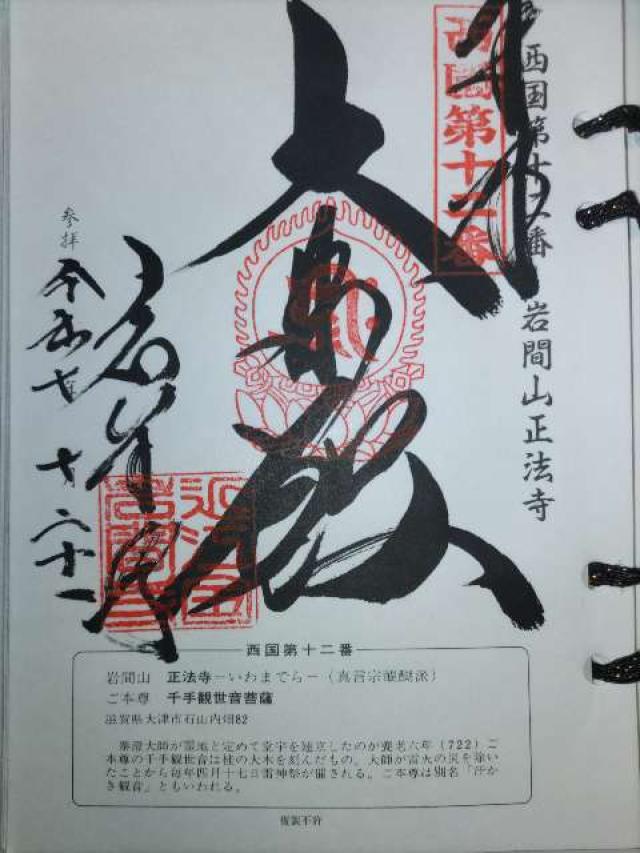 西国第十二番 岩間山正法寺
西國第十二番
奉拝
大悲殿
岩間寺
参拝
令和七 十 二十一
西国第十二番
岩間山 正法寺－いわまでら－（真言宗醍醐派）
ご本尊 千手観世音菩薩
滋賀県大津市石山内畑82
泰澄大師が霊地と定めて堂宇を建立したのが養老六年（722）ご
本尊の千手観世音は桂の大木を刻んだもの。大師が雷火の災を除い
たことから毎年四月十七日雷神祭が催される。ご本尊は別名「汗か
き観音」ともいわれる。
複製不許